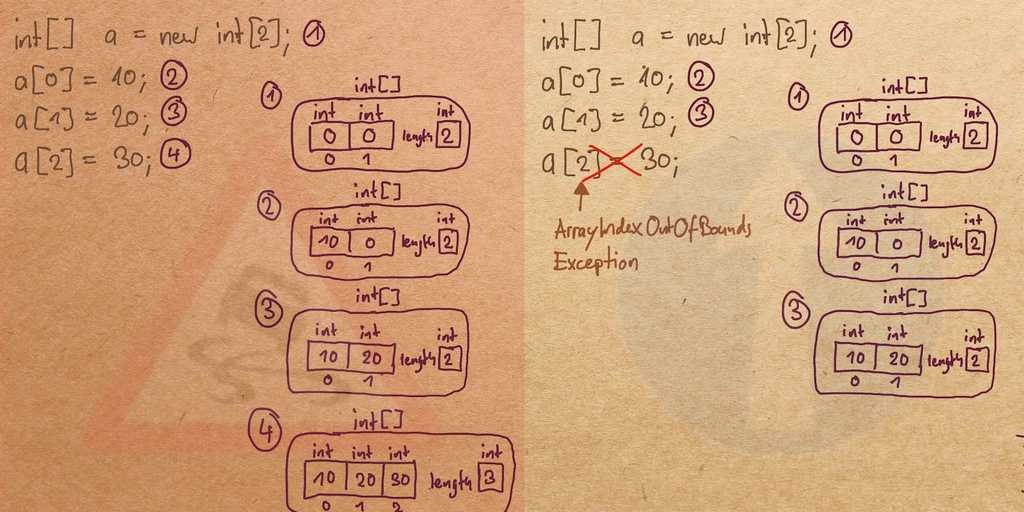 int[] a = new int[2]; ①
a[0] = 10; ②
a[1] = 20; ③
a[2] = 30; ④
①
int[]
int int int
0 0 length 2
0 1
②
int[]
int int int
10 0 length 2
0 1
③
int[]
int int int
10 20 length 2
0 1
④
int[]
int int int int
10 20 30 length 3
0 1 2
int[] a = new int[2]; ①
a[0] = 10; ②
a[1] = 20; ③
a[2] = 30;
ArrayIndexOutOfBounds
Exception
①
int[]
int int int
0 0 length 2
0 1
②
int[]
int int int
10 0 length 2
0 1
③
int[]
int int int
10 20 length 2
0 1